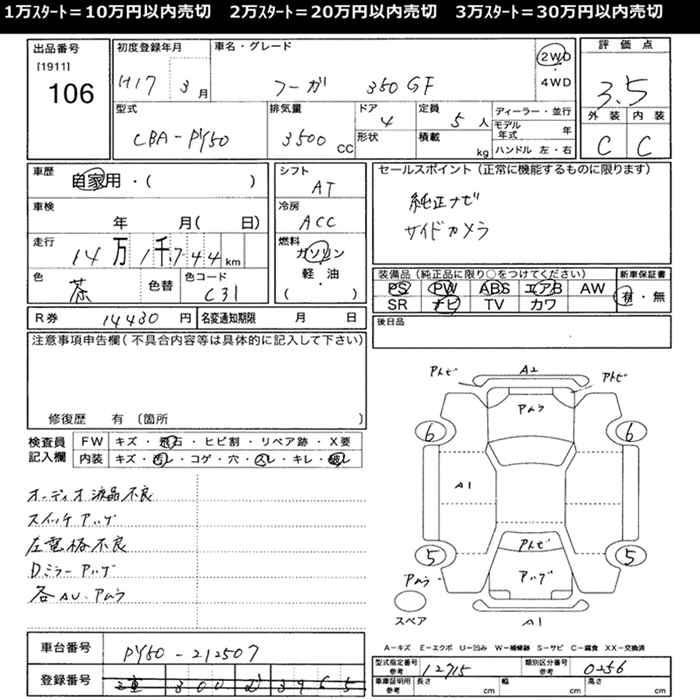 1万ｽﾀｰﾄ＝10万円以内売切　2万ｽﾀｰﾄ＝20万円以内売切　3万ｽﾀｰﾄ＝30万円以内売切
出品番号
[1911]
106
初度登録年月
H17 3月
車名・グレード
フーガ 350GF
2WD
4WD
評価点
3.5
外装 内装
C C
型式
CBA-PY50
排気量
3500 CC
ドア
4
形状
定員
5人
積載
kg
ディーラー・並行
モデル年式 年
ハンドル 左・右
車歴
自家用・( )
車検
年 月( 日)
走行
14万1千744km
色
茶 色替
色コード
C31
シフト
AT
冷房
ACC
燃料
ガソリン
軽・油
( )
セールスポイント (正常に機能するものに限ります)
純正ナビ
サイドカメラ
装備品(純正品に限り○をつけてください)
PS PW ABS エアB AW
SR ナビ TV カワ
新車保証書
有・無
R券 14430円
名変通知期限 月 日
後日品
注意事項申告欄(不具合内容等は具体的に記入して下さい)
修復歴 有 〔箇所 〕
検査員記入欄
FW キズ・飛石・ヒビ割・リペア跡・X要
内装 キズ・汚レ・コゲ・穴・スレ・キレ・破レ
オーディオ液晶不良
スイッチアッゲ
Dミラーアッゲ
各AU・アムラ
アトビ A2 アトビ
アムラ
6 6
A1
アトビ
5 5
アムラ アッゲ
スペア A1
A－キズ E－エクボ U－凹み W－補修跡 S－サビ C－腐食 XX－交換済
車台番号 PY50-212507
登録番号
型式指定番号 参考 12715
類別区分番号 参考 0256
車庫証明用 参考 長さ cm 幅 cm 高さ cm